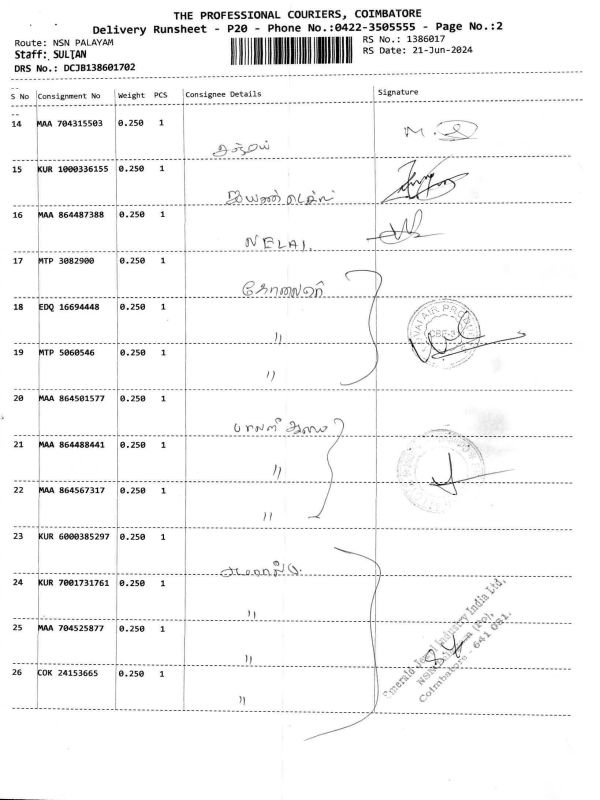 THE PROFESSIONAL COURIERS, COIMBATORE
Delivery Runsheet - P20 - Phone No.:0422-3505555 - Page No.:2
Route: NSN PALAYAM
RS No.: 1386017
Staff: SULTAN
RS Date: 21-Jun-2024
DRS No.: DCJB138601702
S No Consignment No Weight PCS Consignee Details Signature
14 MAA 704315503 0.250 1
15 KUR 1000336155 0.250 1
16 MAA 864487388 0.250 1
NELAI.
17 MTP 3082900 0.250 1
18 EDQ 16694448 0.250 1
"
19 MTP 5060546 0.250 1
"
20 MAA 864501577 0.250 1
21 MAA 864488441 0.250 1
"
22 MAA 864567317 0.250 1
"
23 KUR 6000385297 0.250 1
24 KUR 7001731761 0.250 1
"
25 MAA 704525877 0.250 1
"
26 COK 24153665 0.250 1
"
Emerald Jewel Industry India Ltd,
Coimbatore - 641 031.